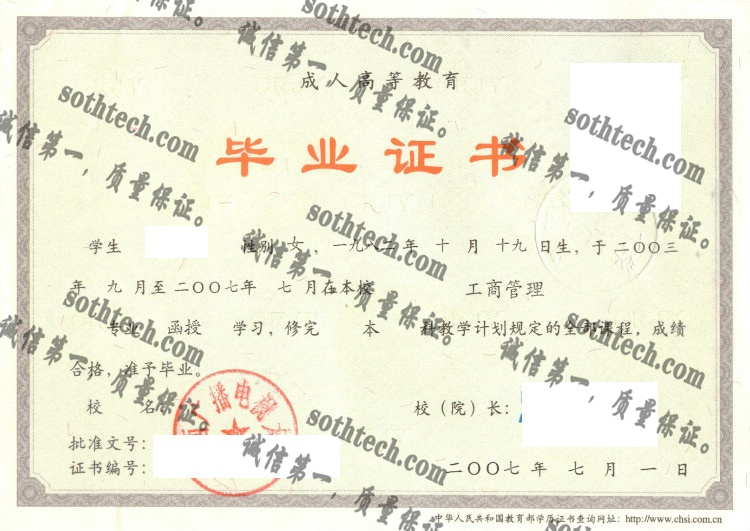 成人高等教育
毕业证书
学生 性别 女 ，一九八二年 十 月 十九 日生，于 二〇〇三
年 九 月至 二〇〇七年 七 月在本校 工商管理
专业 函授 学习，修完 本 科教学计划规定的全部课程，成绩
合格，准予毕业。
校 名： 校（院）长：
批准文号：
证书编号： 二〇〇七年 七月 一日
中华人民共和国教育部学历证书查询网址：http://www.chsi.com.cn
sothtech.com
诚信第一，质量保证。
sothtech.com
诚信第一，质量保证。
sothtech.com
诚信第一，质量保证。
sothtech.com
诚信第一，质量保证。
sothtech.com
诚信第一，质量保证。
sothtech.com
诚信第一，质量保证。
sothtech.com
诚信第一，质量保证。